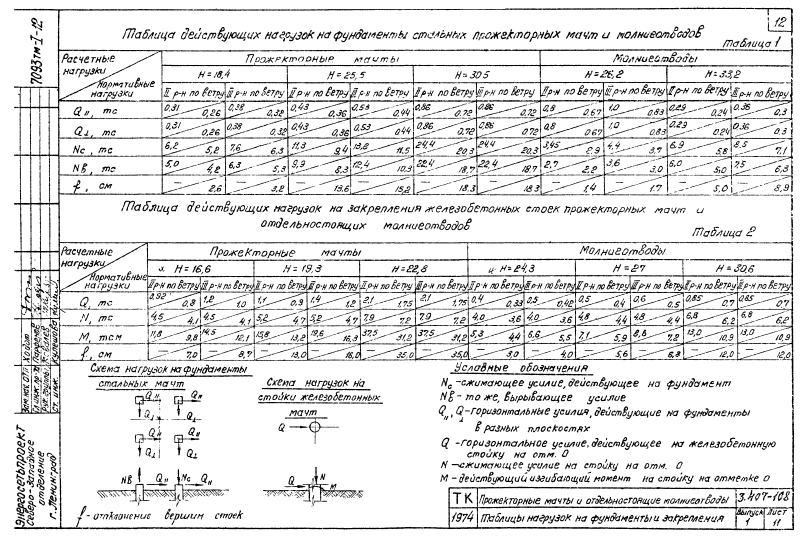 12
Таблица действующих нагрузок на фундаменты стальных прожекторных мачт и молниеотводов
Таблица 1
Расчетные нагрузки
Нормативные нагрузки
Прожекторные мачты
Молниеотводы
H=18,4 H=25,5 H=30,5 H=26,2 H=33,2
II р-н по ветру III р-н по ветру II р-н по ветру III р-н по ветру II р-н по ветру III р-н по ветру II р-н по ветру III р-н по ветру II р-н по ветру III р-н по ветру
Q॥, тс 0,31 0,26 0,38 0,32 0,43 0,36 0,53 0,44 0,86 0,72 0,86 0,72 0,8 0,67 1,0 0,83 0,29 0,24 0,36 0,3
Q⊥, тс 0,31 0,26 0,38 0,32 0,43 0,36 0,53 0,44 0,86 0,72 0,86 0,72 0,8 0,67 1,0 0,83 0,29 0,24 0,36 0,3
Nс, тс 6,2 5,2 7,6 6,3 11,3 9,4 13,8 11,5 24,4 20,3 24,4 20,3 3,45 2,9 4,4 3,7 6,9 5,8 8,5 7,1
Nв, тс 5,0 4,2 6,3 5,3 9,9 8,3 12,4 10,3 22,4 18,7 22,4 18,7 2,7 2,2 3,6 3,0 6,0 5,0 7,5 6,3
f, см — 2,6 — 3,2 — 13,6 — 15,2 — 18,3 — 18,3 — 1,4 — 1,7 — 5,0 — 8,9
Таблица действующих нагрузок на закрепления железобетонных стоек прожекторных мачт и
отдельностоящих молниеотводов
Таблица 2
Расчетные нагрузки
Нормативные нагрузки
Прожекторные мачты
Молниеотводы
H=16,6 H=19,3 H=22,8 H=24,3 H=27 H=30,6
II р-н по ветру III р-н по ветру II р-н по ветру III р-н по ветру II р-н по ветру III р-н по ветру II р-н по ветру III р-н по ветру II р-н по ветру III р-н по ветру II р-н по ветру III р-н по ветру
Q, тс 0,92 0,8 1,2 1,0 1,1 0,9 1,4 1,2 2,1 1,75 2,1 1,75 0,4 0,33 0,5 0,42 0,5 0,4 0,6 0,5 0,85 0,7 0,85 0,7
N, тс 4,5 4,1 4,5 4,1 5,2 4,7 5,2 4,7 7,9 7,2 7,9 7,2 4,0 3,6 4,0 3,6 4,8 4,4 4,8 4,4 6,8 6,2 6,8 6,2
M, тсм 11,8 9,8 14,5 12,1 15,8 13,2 19,6 16,3 37,5 31,2 37,5 31,2 5,3 4,4 6,6 5,5 7,1 5,9 8,8 7,2 13,0 10,9 13,0 10,9
f, см — 7,0 — 8,7 — 13,0 — 16,0 — 35,0 — 35,0 — 3,0 — 4,0 — 5,6 — 6,8 — 12,0 — 12,0
Схема нагрузок на фундаменты
стальных мачт
Q॥ Q॥
Q⊥ Q⊥
Q॥ Q॥
Q⊥ Q⊥
Nв Q॥ Nс Q॥
f - отклонение вершин стоек
Схема нагрузок на
стойки железобетонных
мачт
Q
N
Q M
Условные обозначения
Nс - сжимающее усилие, действующее на фундамент
Nв - то же, вырывающее усилие
Q॥, Q⊥ - горизонтальные усилия, действующие на фундаменты
в разных плоскостях
Q - горизонтальное усилие, действующее на железобетонную
стойку на отм. 0
N - сжимающее усилие на стойку на отм. 0
M - действующий изгибающий момент на стойку на отметке 0
ТК Прожекторные мачты и отдельностоящие молниеотводы 3.407-108
1974 Таблицы нагрузок на фундаменты и закрепления Выпуск 1 Лист 11
7093тм-I-12
Энергосетьпроект
Северо-Западное
отделение
г. Ленинград